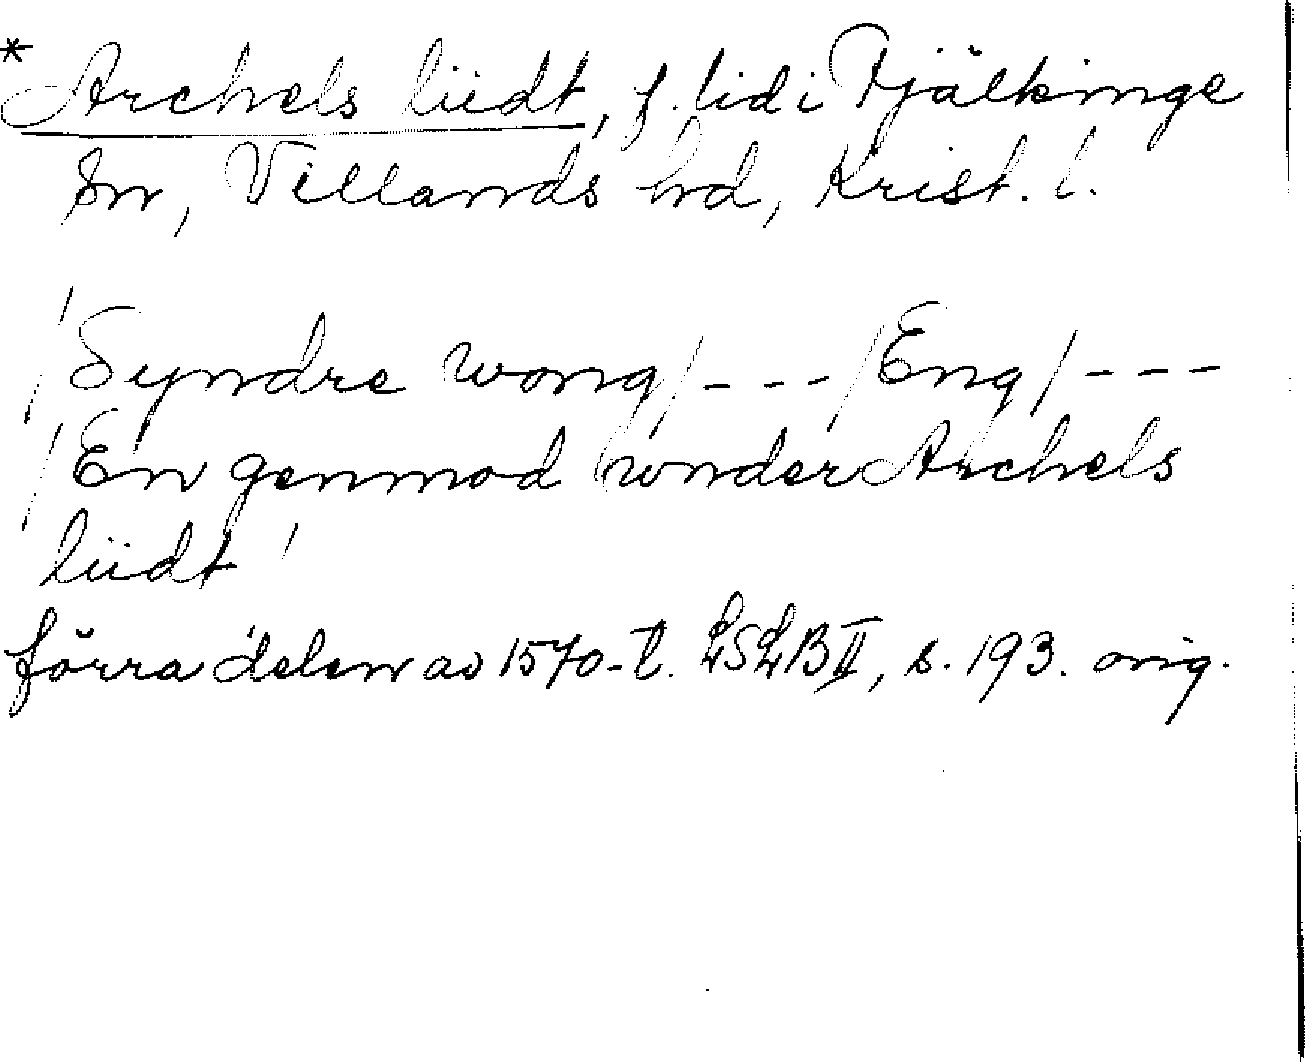 * Archels liidt, f. lid i Fjälkinge
sn, Villands hd, Krist. l.
'/Syndre wong/ --- /Eng/ ---
/En genmod wnder Archels
liidt'
förra delen av 1570-t. LSLB II, s. 193. orig.